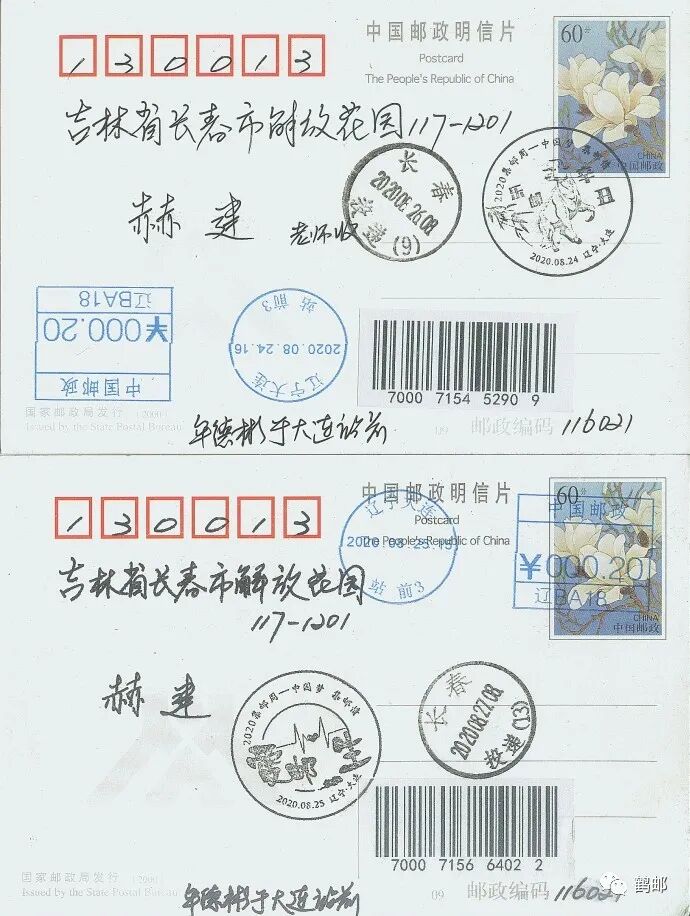 中国邮政明信片
Postcard
The People's Republic of China
60分
CHINA
中国邮政
130013
吉林省长春市解放花园117-1201
赫建 老师收
长春
2020.08.26.08
投递
(9)
2020集邮周一中国梦 集邮情
2020.08.24 辽宁·大连
中国邮政
¥000.20
辽BA18
站前3
2020.08.24.16
辽宁大连
7000 7154 5290 9
国家邮政局发行 (2000)
Issued by the State Postal Bureau
年德彬于大连站前
09 邮政编码 116021
中国邮政明信片
Postcard
The People's Republic of China
60分
中国邮政
130013
辽宁大连
2020.08.25.15
站前3
中国邮政
¥000.20
辽BA18
吉林省长春市解放花园
117-1201
赫建
2020集邮周一中国梦 集邮情
2020.08.25 辽宁·大连
长春
2020.08.27.08
投递(13)
7000 7156 6402 2
国家邮政局发行 (2000)
Issued by the State Postal Bureau
年德彬于大连站前
09 邮政编码 116021
鹤邮